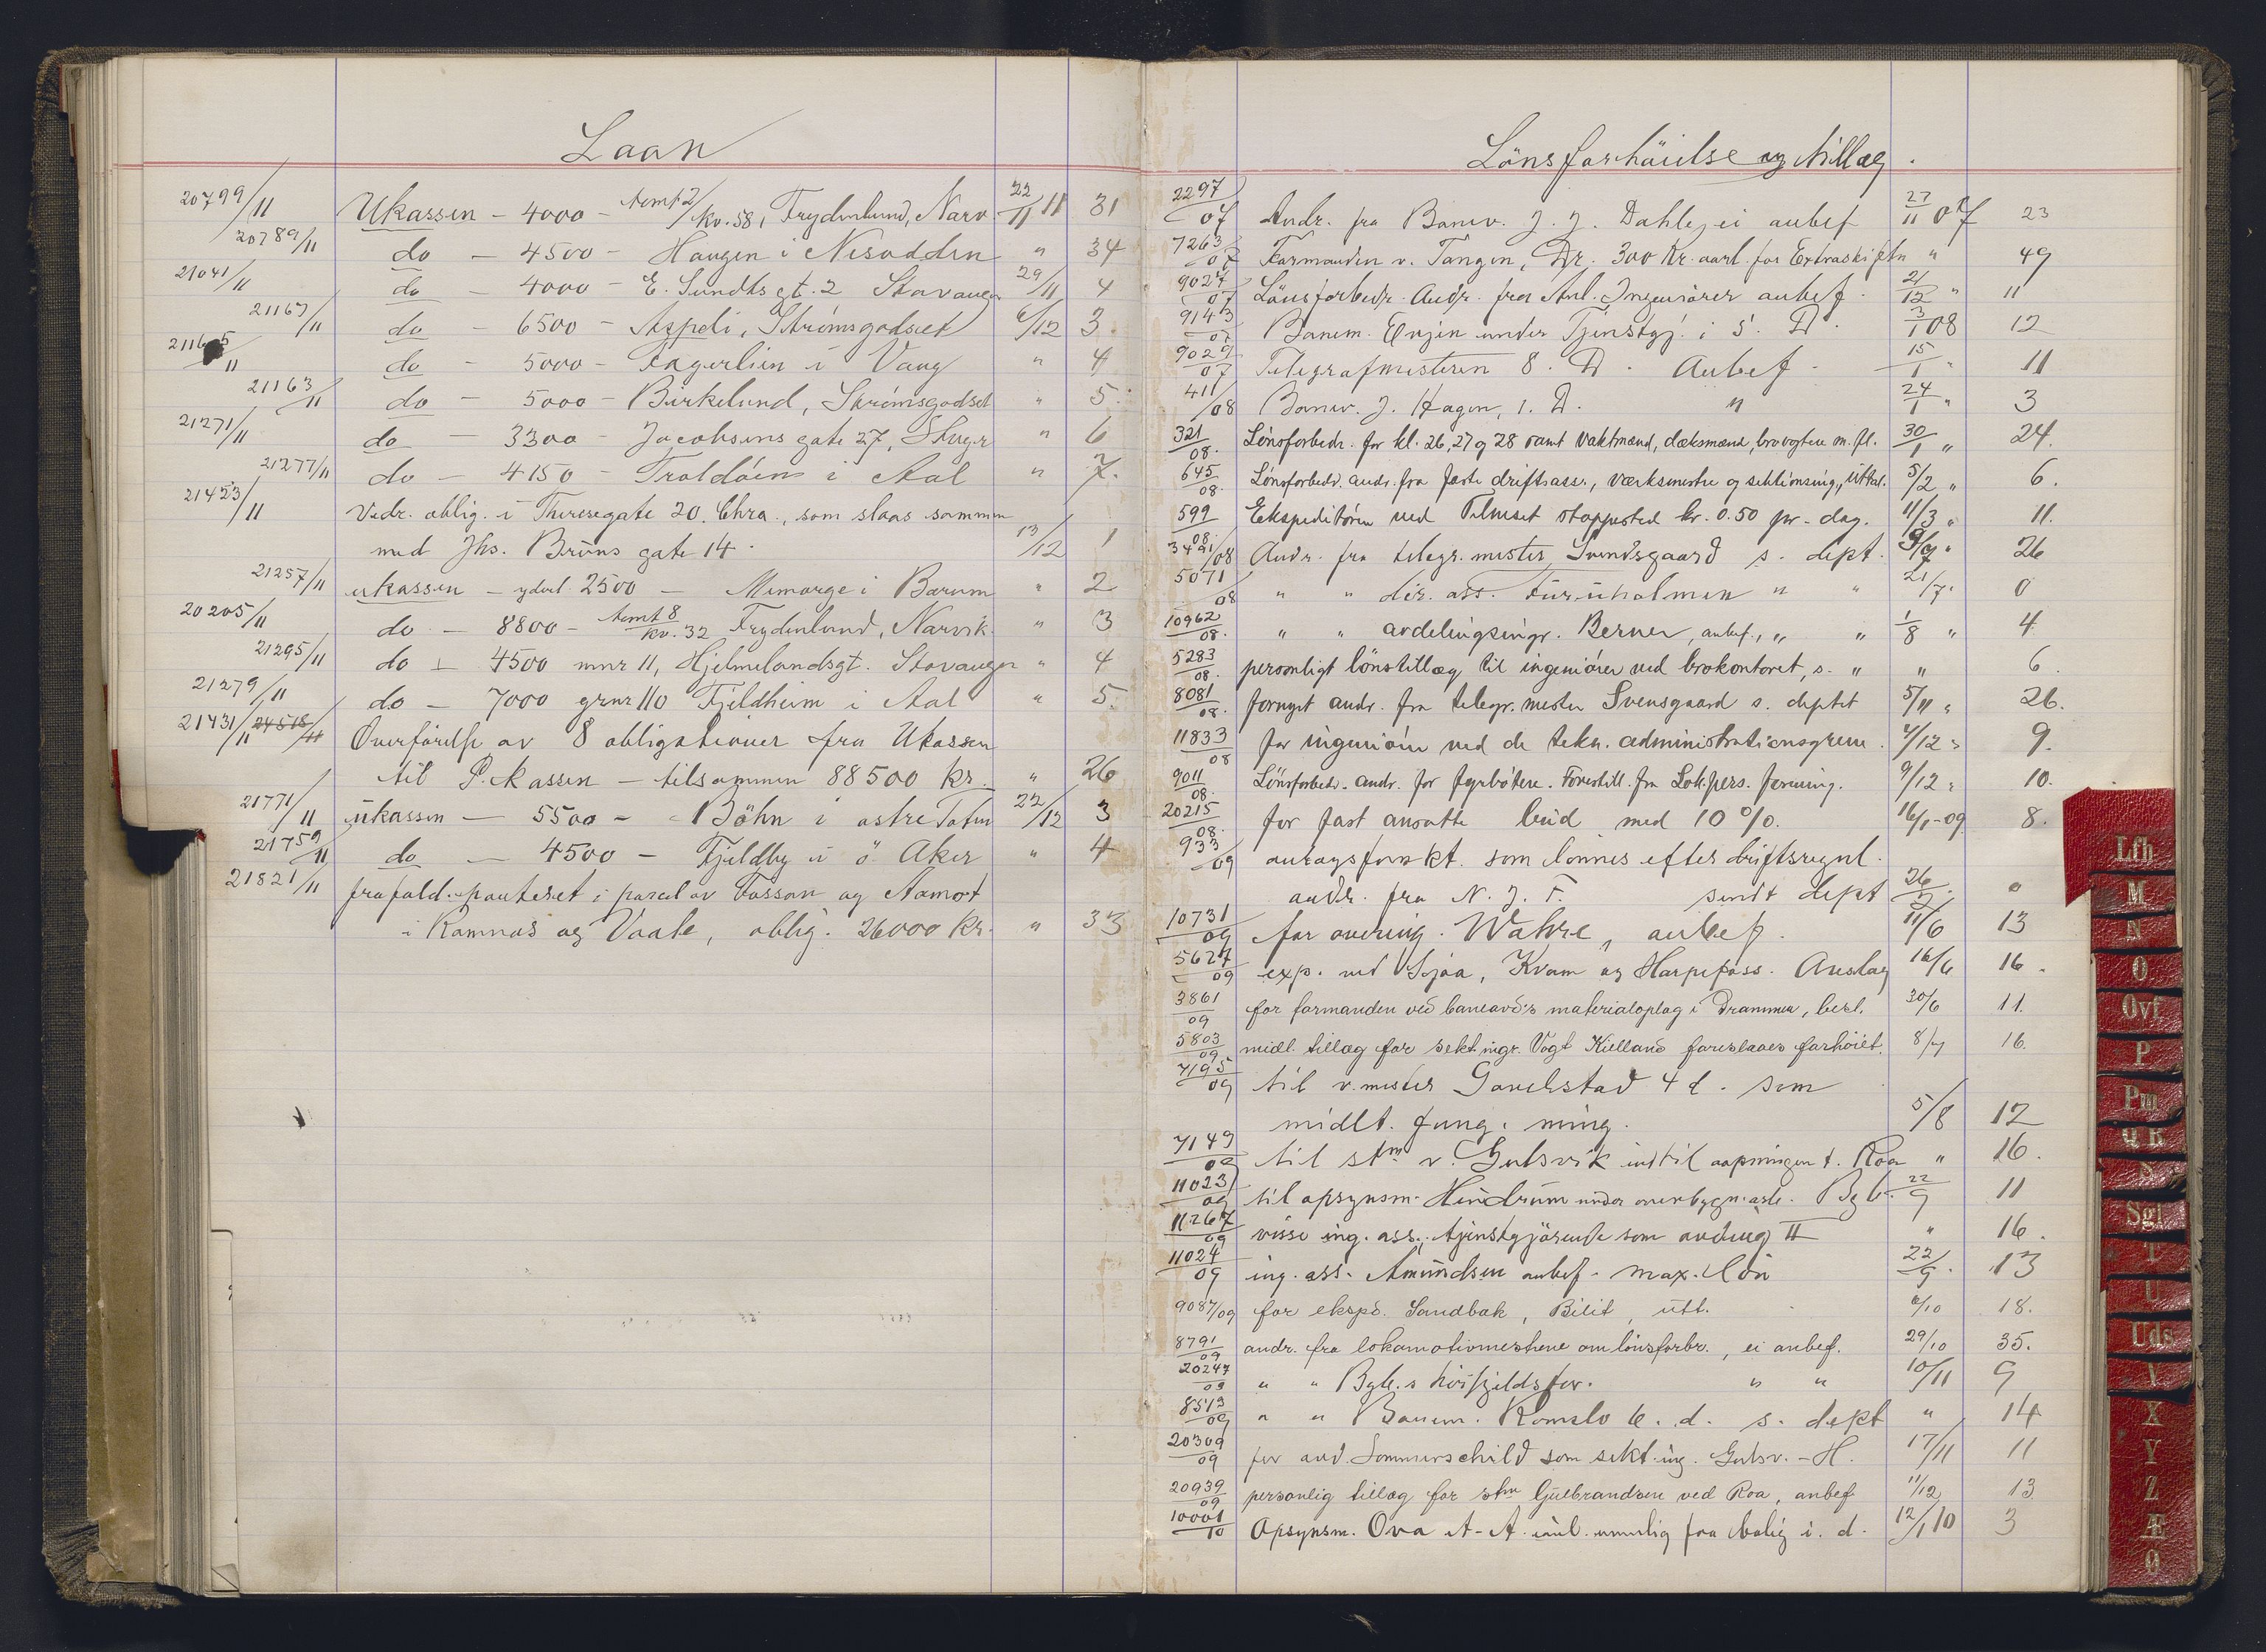 Laan
20799/11 Ukassen - 4000 - tomt 2/kv. 58, Frydenlund, Narv. 22/11 11 31
20789/11 do - 4500 - Haugen i Nesodden " 34
21041/11 do - 4000 - E. Sundts gt. 2 Stavanger 29/11 4
21167/11 do - 6500 - Aspeli, Strømsgodset 6/12 3.
11 do - 5000 - Fagerlien i Vang " 4
21163/11 do - 5000 - Birkelund, Strømsgodset " 5.
21271/11 do - 3300 - Jacobsens gate 27, " 6
21277/11 do - 4150 - Traldøen i Aal " 7.
21423/11 Vedr. oblig. i Theresegate 20. Chra., som slaas sammen
med Jhs. Bruns gate 14. 13/12 1
21257/11 ukassen - yderl. 2500 - i Bærum " 2
20205/11 do - 8800 - tomt 8/kv. 32 Frydenlund, Narvik. " 3
21295/11 do - 4500 mnr 11, Hjelmelandsgt. Stavanger " 4
21279/11 do - 7000 grnr 110 Fjeldheim i Aal " 5.
21431/11 24518/11 Overførelse av 8 obligationer fra Ukassen
til P.kassen - tilsammen 88500 kr. " 26
21771/11 ukassen - 5500 - Böhn i østre Toten 22/12 3
21759/11 do - 4500 - Fjeldby i ö. Aker " 4
21821/11 frafald. panteret i parcel av Fossan og Aamot
i Ramnæs og Vaale, oblig. 26000 kr. " 33
Lönsforhöielse og tillæg.
2297/07 Andr. fra Banev. J. J. Dahle, ei anbef 27/11 07 23
7263/07 Formanden v. Tangen, Dr. 300 Kr. aarl. for Extraskiften " 49
9027/07 Lönsforbedr. Andr. fra Anl. Ingeniörer anbef. 21/12 " 11
9143/07 Banem. Evjen under Tjenstgj. i 5. D. 3/1 08 12
9029/07 Telegrafmesteren 8. D. Anbef. 15/1 " 11
411/08 Banev. J. Hagen, 1. D. " 24/1 " 3
321/08. Lönsforbedr. for kl. 26, 27 og 28 samt vaktmænd, dæksmænd, brovogtere m. fl. 30/1 " 24.
645/08. Lönsforbedr. andr. fra faste driftsass., værksmestre og sektionsing., uttal. 5/2 " 6.
599/08. Ekspeditören ved Tilmset stoppested kr. 0.50 pr. dag. 11/3 " 11.
3491/08 Andr. fra telegr. mester Svendsgaard s. dept. 9/7 " 26
5071/08 " " dir. ass. Furuholmen " " 21/7. 0
10962/08. " " avdelingsingr. Berner, anbef., " " 1/8 " 4
5283/08. personligt lönstillæg til ingeniörer ved brokontoret, s. " " 6.
8081/08. fornyet andr. fra telegr. mester Svensgaard s. deptet 5/11 " 26.
11833/08 for ingeniörer ved de tekn. administrationsgrene. 4/12 " 9.
9011/08. Lönsforbedr. andr. for fyrbötere. Forestill. fra Lok.pers. forening. 9/12 " 10.
20215/08. for fast ansatte bud med 10 %. 16/1-09 8.
933/09 antagsfunkt. som lönnes efter driftsregul.
andr. fra N. J. F. sendt dept 0
10731/09 for avding. Wahre, anbef. 11/6 13
5627/09 exp. ved Sjoa, Kvam og Harpefoss. Avslag 16/6 16.
3861/09 for formanden ved baneavd's materialoplag i Drammen, besl. 30/6 11.
5803/09 midl. tillæg for sekt. ingr. Vogt Kielland foreslaaes forhöiet. 8/7 16.
7195/09 til v. mester Gavelstad 4 d. som
midlt. fung. ming. 5/8 12
7149/09 til stm v. Gulsvik indtil aapningen t. Roa " 16.
11023/09 til opsynsm. Hindrum under overbygn. arb. Bgb. 22/9 11
11267/09 visse ing. ass., tjenstgjörende som avding II " 16.
11024/09 ing. ass. Amundsen anbef. max. lön 22/9. 13
9087/09 for ekspd. Sandbak, Bilit, utt. 6/10 18.
8791/09 andr. fra lokomotivmestrene om lönsforbr., ei anbef. 29/10 35.
20247/09 " " Bgb.s höifjeldsfor. " " 10/11 9
8513/09 " " Banem. Romslo 6. d. s. dept " 14
20309/09 for avd. Sommerschild som sekt. ing. Gulsv. - H. 17/11 11
20939/09 personlig tillæg for stm Gulbrandsen ved Roa, anbef 11/12 13
10001/10 Opsynsm. Ova A-A. inl. umulig faa bolig i. d. 12/1 10 3
Lfh
M
N
O
Ovf
P
Pm
Q R
S
Sgl
T
U
Uds
V
X
Y
Z
Æ
Ø